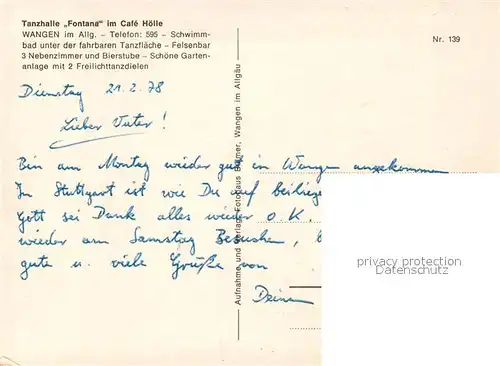 Tanzhalle „Fontana" im Café Hölle
WANGEN im Allg. – Telefon: 595 – Schwimm-
bad unter der fahrbaren Tanzfläche – Felsenbar
3 Nebenzimmer und Bierstube – Schöne Garten-
anlage mit 2 Freilichttanzdielen
Nr. 139
Dienstag 21.2.78
Lieber Vater!
Bin am Montag wieder gut in Wangen angekommen
In Stuttgart ist wie Du auf beiliege
Gott sei Dank alles wieder o.K.
wieder am Samstag Besuchen,
gute u. viele Grüße von
Deine
Aufnahme und Verlag: Fotohaus Wangen im Allgäu
privacy protection
www.Cards-Collector.com